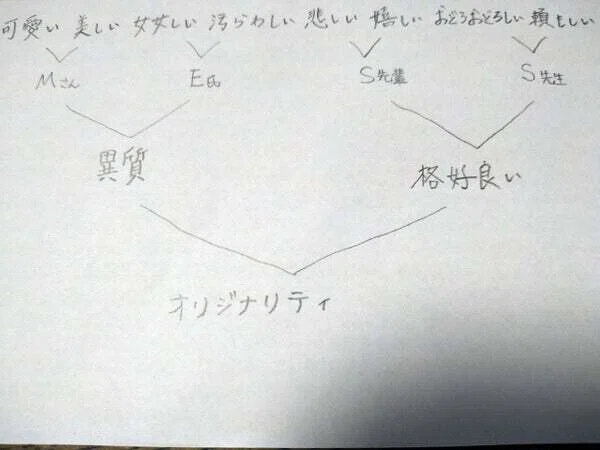 可愛い 美しい 女女しい 汚らわしい 悲しい 嬉しい おどろおどろしい 頼もしい
Mさん E氏 S先輩 S先生
異質 格好良い
オリジナリティ